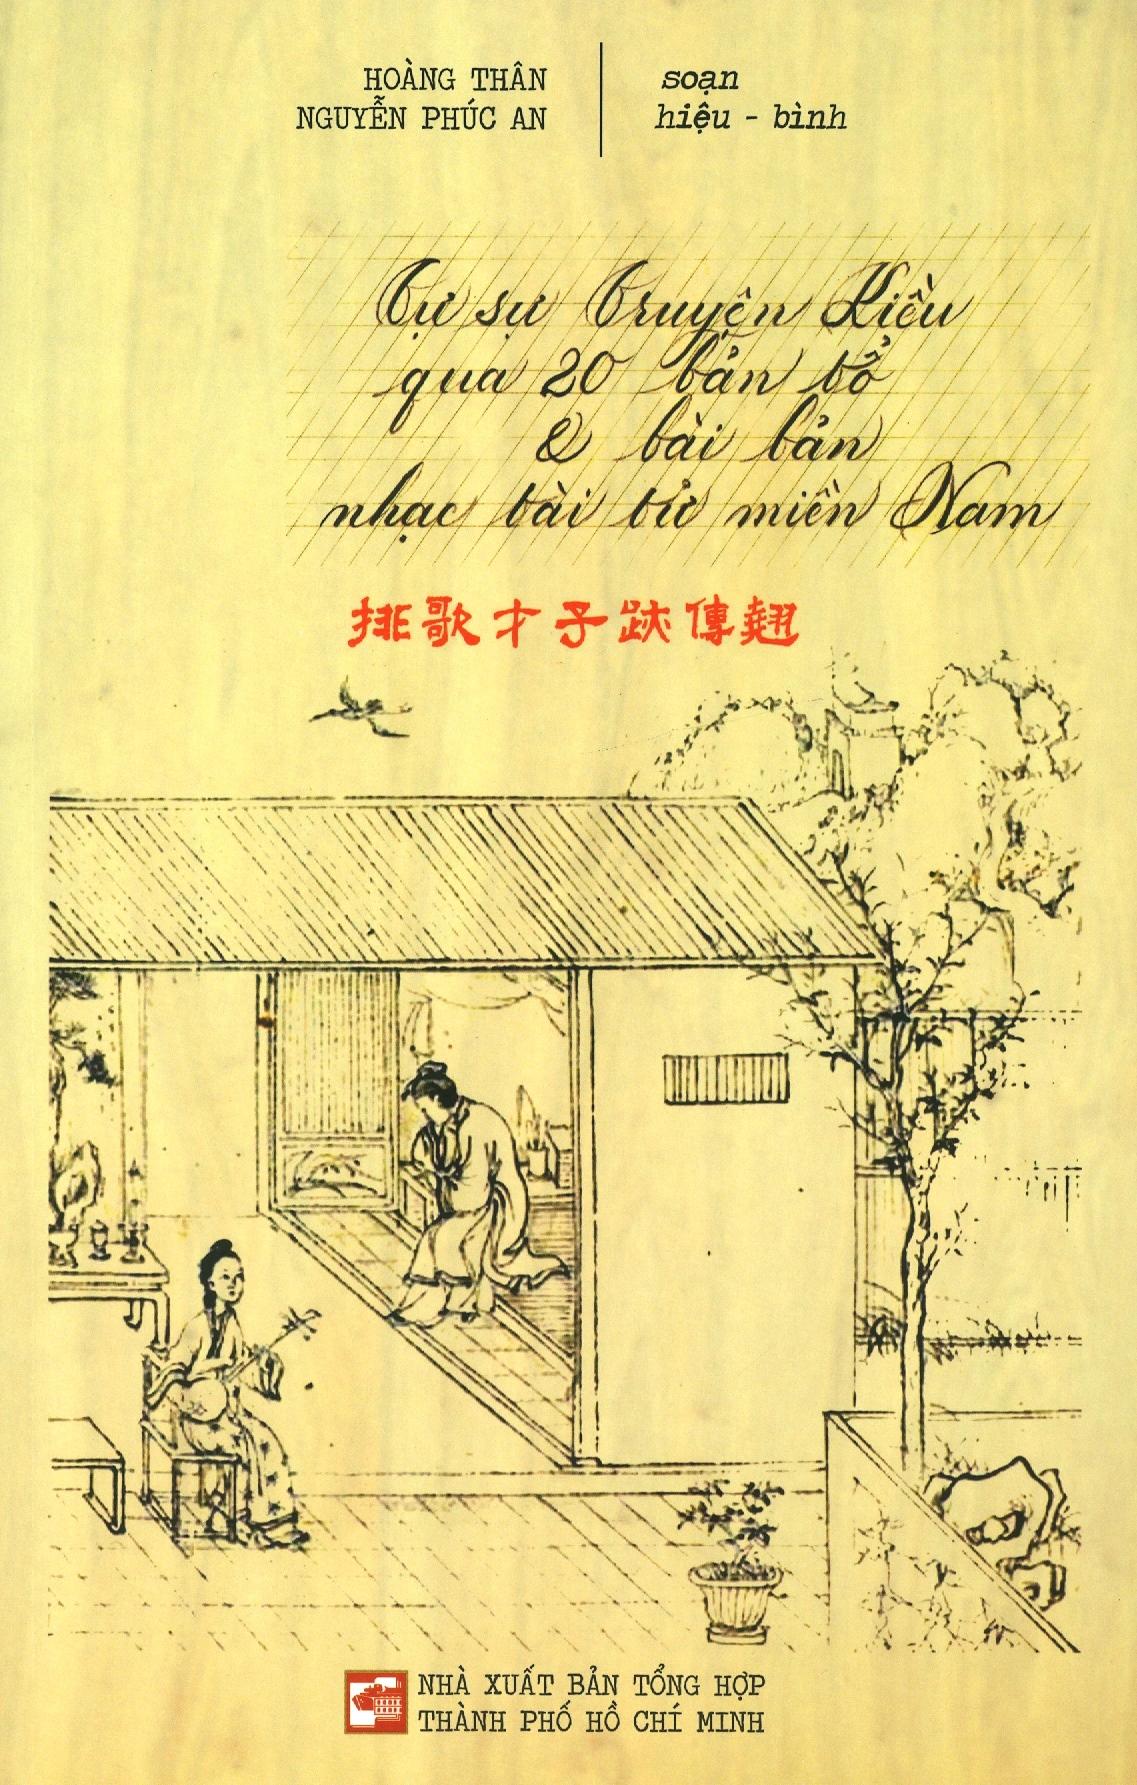 HOÀNG THÂN
NGUYỄN PHÚC AN
soạn
hiệu - bình
Tự sự Truyện Kiều
qua 20 bản tổ
& bài bản
nhạc tài tử miền Nam
排歌才子跡傳翹
NHÀ XUẤT BẢN TỔNG HỢP
THÀNH PHỐ HỒ CHÍ MINH